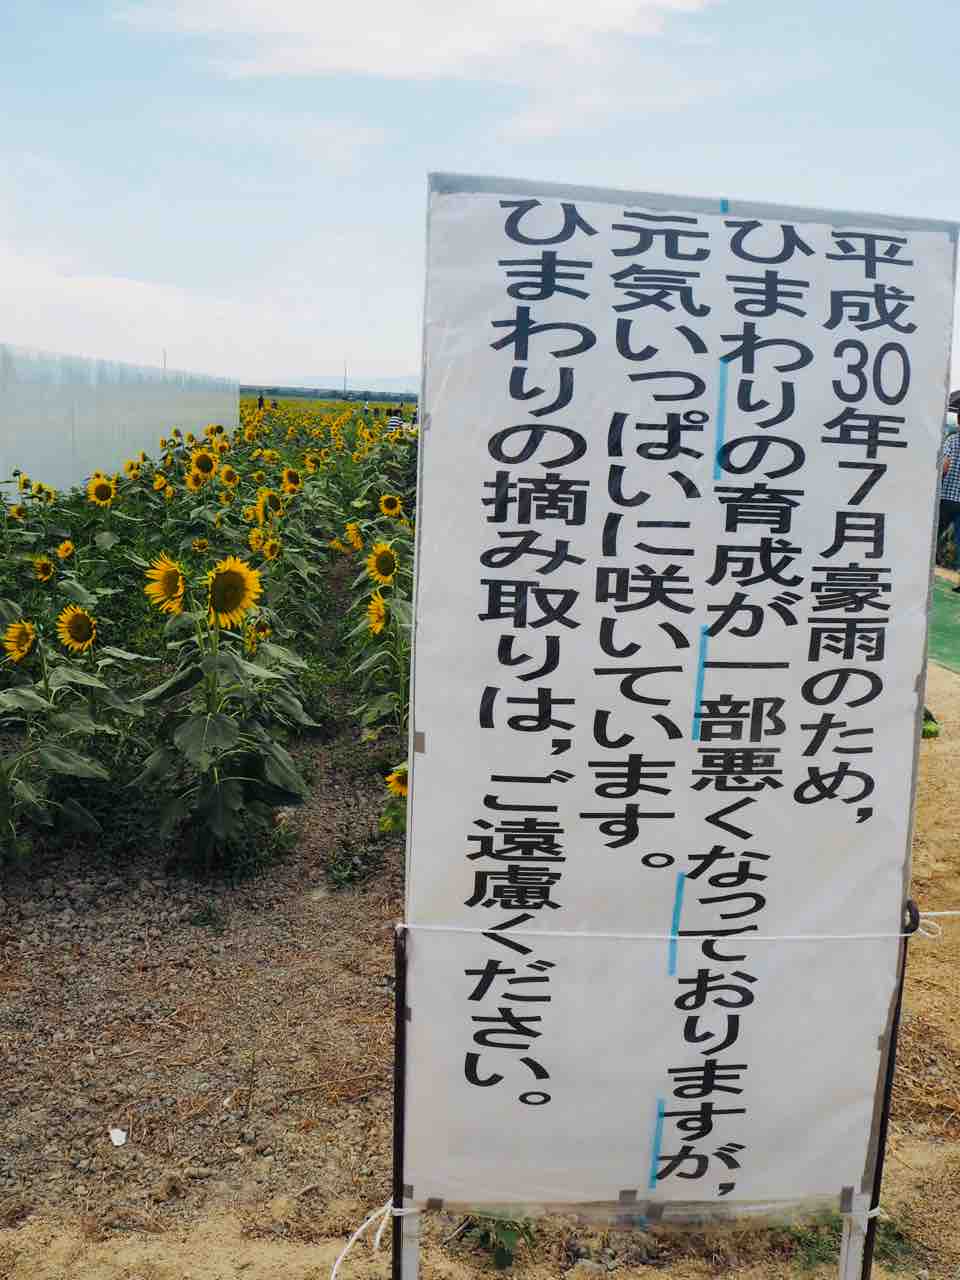 平成30年7月豪雨のため,
ひまわりの育成が一部悪くなっておりますが,
元気いっぱいに咲いています。
ひまわりの摘み取りは,ご遠慮ください。